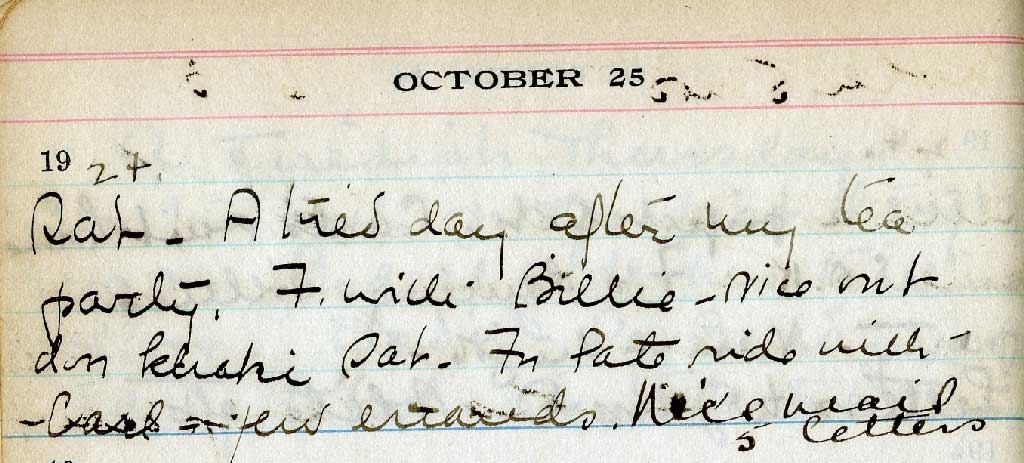 OCTOBER 25
19 24.
Sat - A tired day after my tea
party. F. with Billie - nice out
don khaki Sat. In late ride with -
- Carl = few errands. Nice mail
5 letters